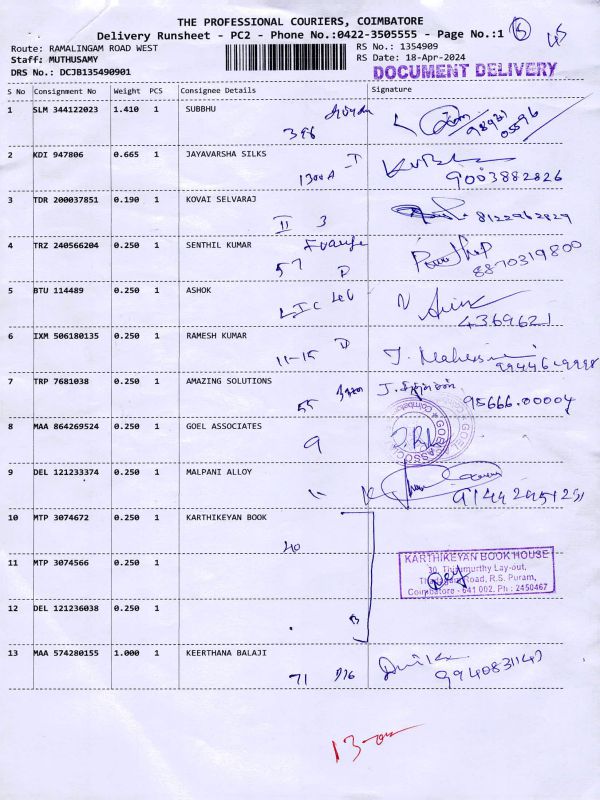 THE PROFESSIONAL COURIERS, COIMBATORE
Delivery Runsheet - PC2 - Phone No.:0422-3505555 - Page No.:1
Route: RAMALINGAM ROAD WEST RS No.: 1354909
Staff: MUTHUSAMY RS Date: 18-Apr-2024
DRS No.: DCJB135490901 DOCUMENT DELIVERY
S No Consignment No Weight PCS Consignee Details Signature
1 SLM 344122023 1.410 1 SUBBHU
396 98931 05596
2 KDI 947806 0.665 1 JAYAVARSHA SILKS
1300A 9003882826
3 TDR 200037851 0.190 1 KOVAI SELVARAJ
II 3 8122962829
4 TRZ 240566204 0.250 1 SENTHIL KUMAR
57 D 8870319800
5 BTU 114489 0.250 1 ASHOK
LIC 4369621
6 IXM 506180135 0.250 1 RAMESH KUMAR
11-15 D
7 TRP 7681038 0.250 1 AMAZING SOLUTIONS
55 95666.00004
8 MAA 864269524 0.250 1 GOEL ASSOCIATES
9
9 DEL 121233374 0.250 1 MALPANI ALLOY
10 MTP 3074672 0.250 1 KARTHIKEYAN BOOK
40
11 MTP 3074566 0.250 1
KARTHIKEYAN BOOK HOUSE
30, Thirumurthy Lay-out,
Road, R.S. Puram,
Coimbatore - 641 002. Ph : 2450467
12 DEL 121236038 0.250 1
13 MAA 574280155 1.000 1 KEERTHANA BALAJI
71 D16 9940831143
13